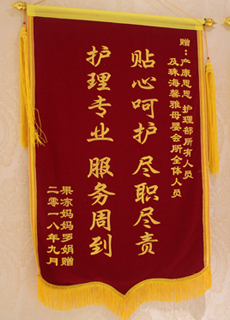 赠：产康恩恩 护理部所有人员
及珠海馨雅母婴会所全体人员
贴心呵护 尽职尽责
护理专业 服务周到
果冻妈妈罗娟赠
二零一八年九月